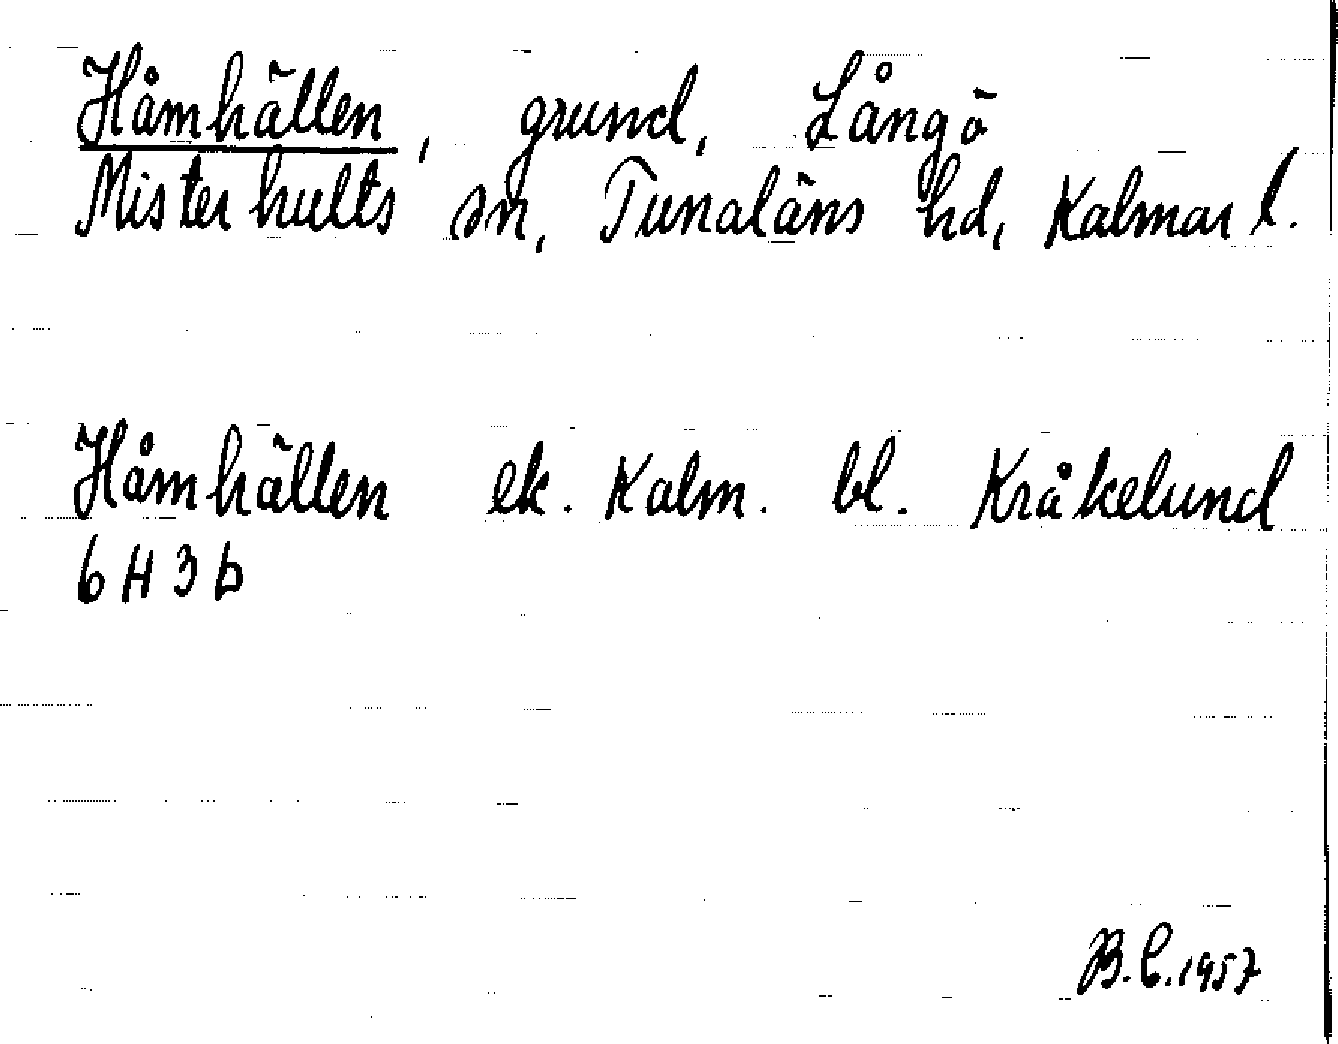 Håmhällen, grund, Långö
Misterhults sn, Tunaläns hd, Kalmar l.
Håmhällen ek. Kalm. bl. Kråkelund
6 H 3 b
B.C. 1957